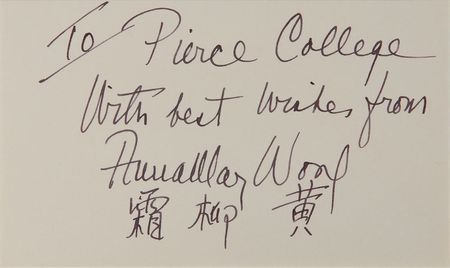 To Pierce College
With best Wishes from
Anna May Wong
霜 柳 黃